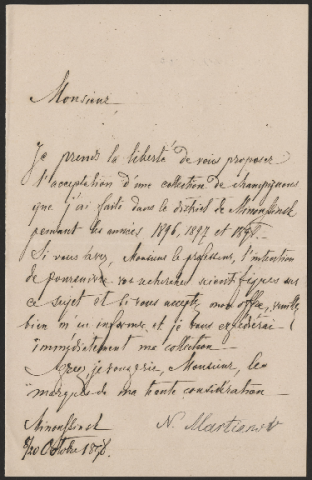 Monsieur
Je prends la liberté de vous proposer
l'acceptation d'une collection de champignons
que j'ai faite dans le district de Minoussinsk
pendant les années 1896, 1897 et 1898.
Si vous avez, Monsieur le professeur, l'intention
de poursuivre vos recherches scientifiques sur
ce sujet et si vous acceptez mon offre, veuillez
bien m'en informer et je vous expédierai
immédiatement ma collection.
je vous prie, Monsieur, les
marques de ma haute considération
Minoussinsk
8/20 Octobre 1898.
N. Martianow